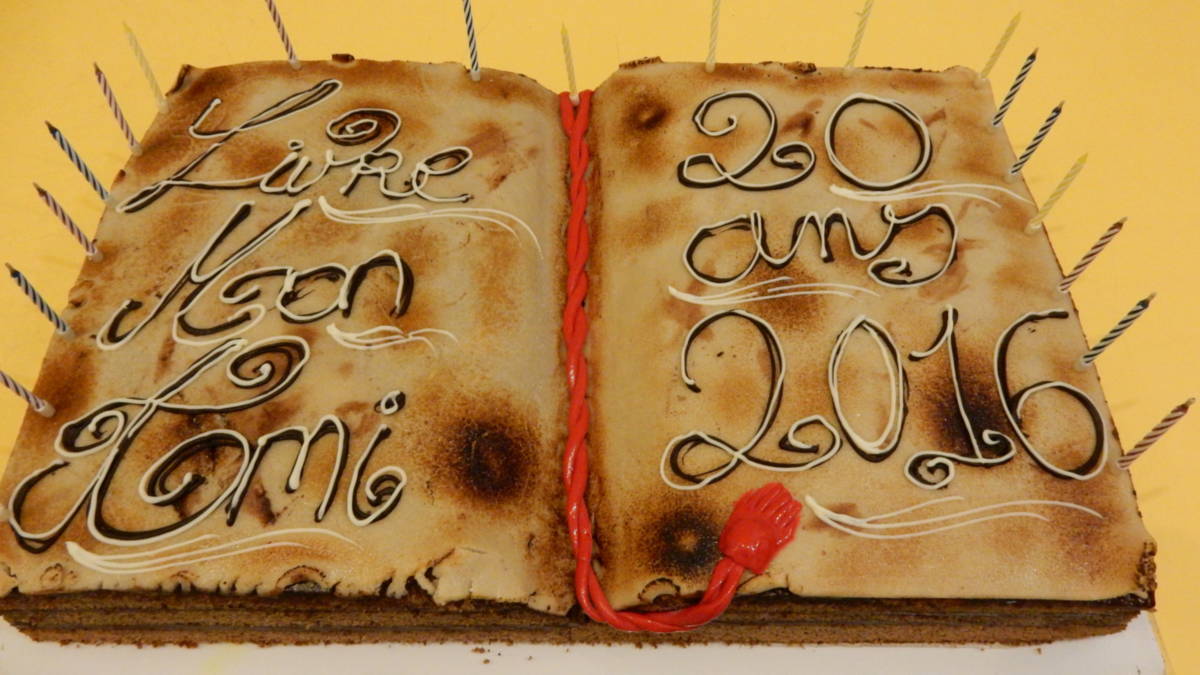 Livre
Mon
Ami
20
ans
2016